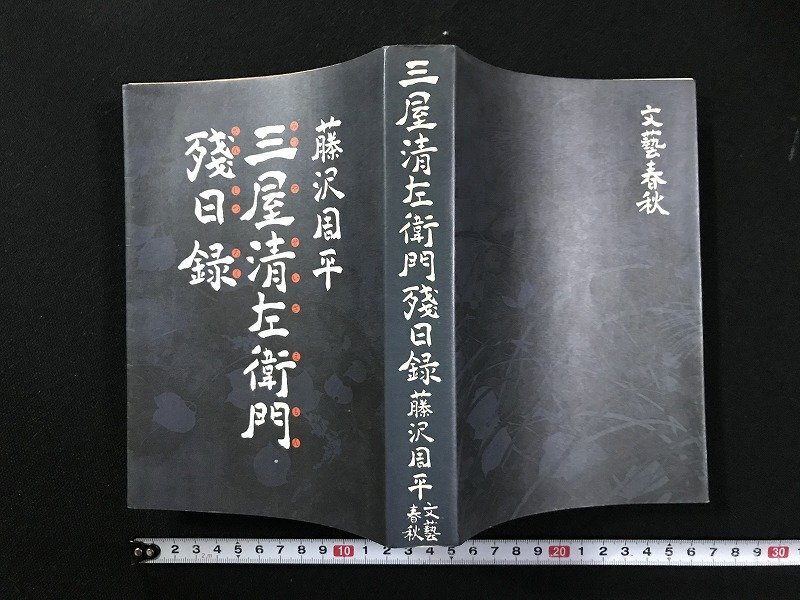 藤沢周平
三屋清左衛門
殘日録
三屋清左衛門殘日録
藤沢周平
文藝
春秋
文藝春秋
2 3 4 5 6 7 8 9 10 1 2 3 4 5 6 7 8 9 20 1 2 3 4 5 6 7 8 9 30